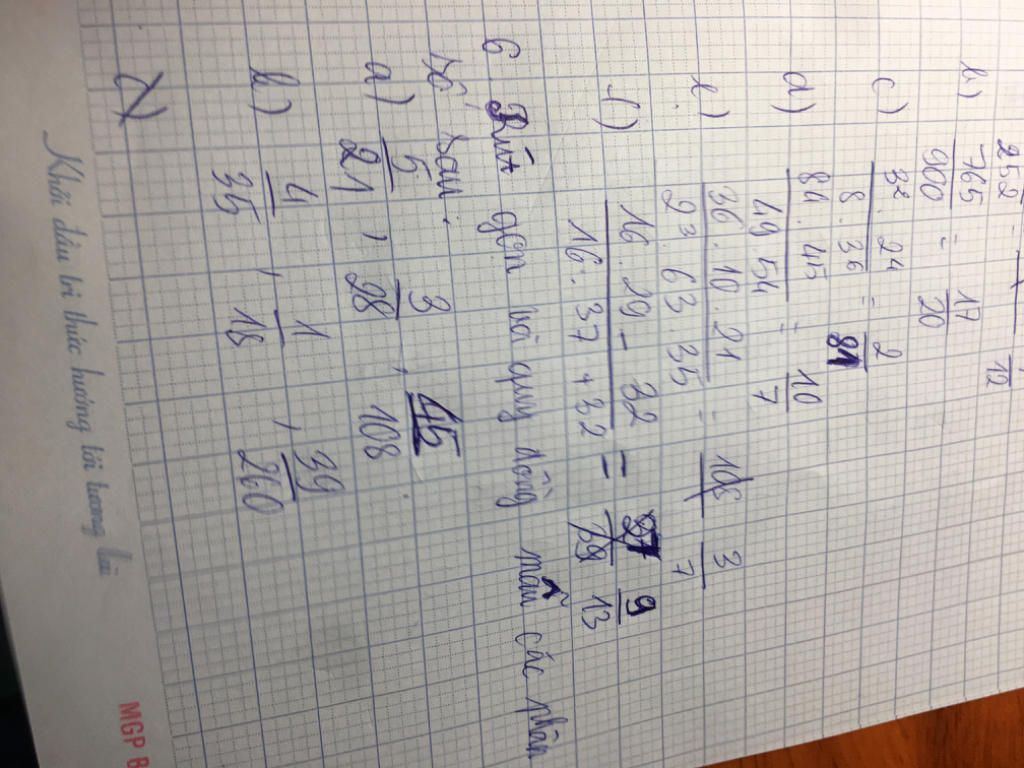 252 12
b) 765/900 = 17/20
c) 32. 24/8. 36 = 2/81
d) 81. 45/49 54 = 10/7
e) 36. 10. 21/23 63. 35 = 3/7
f) 16. 29 - 32/16. 37 + 32 = 9/13
6. Rút gọn rồi quy đồng mẫu các phân
số sau:
a) 5/21, 3/28, 45/108
b) 4/35, 1/18, 39/260
7)
Khởi đầu tri thức hướng tới tương lai
MGP B